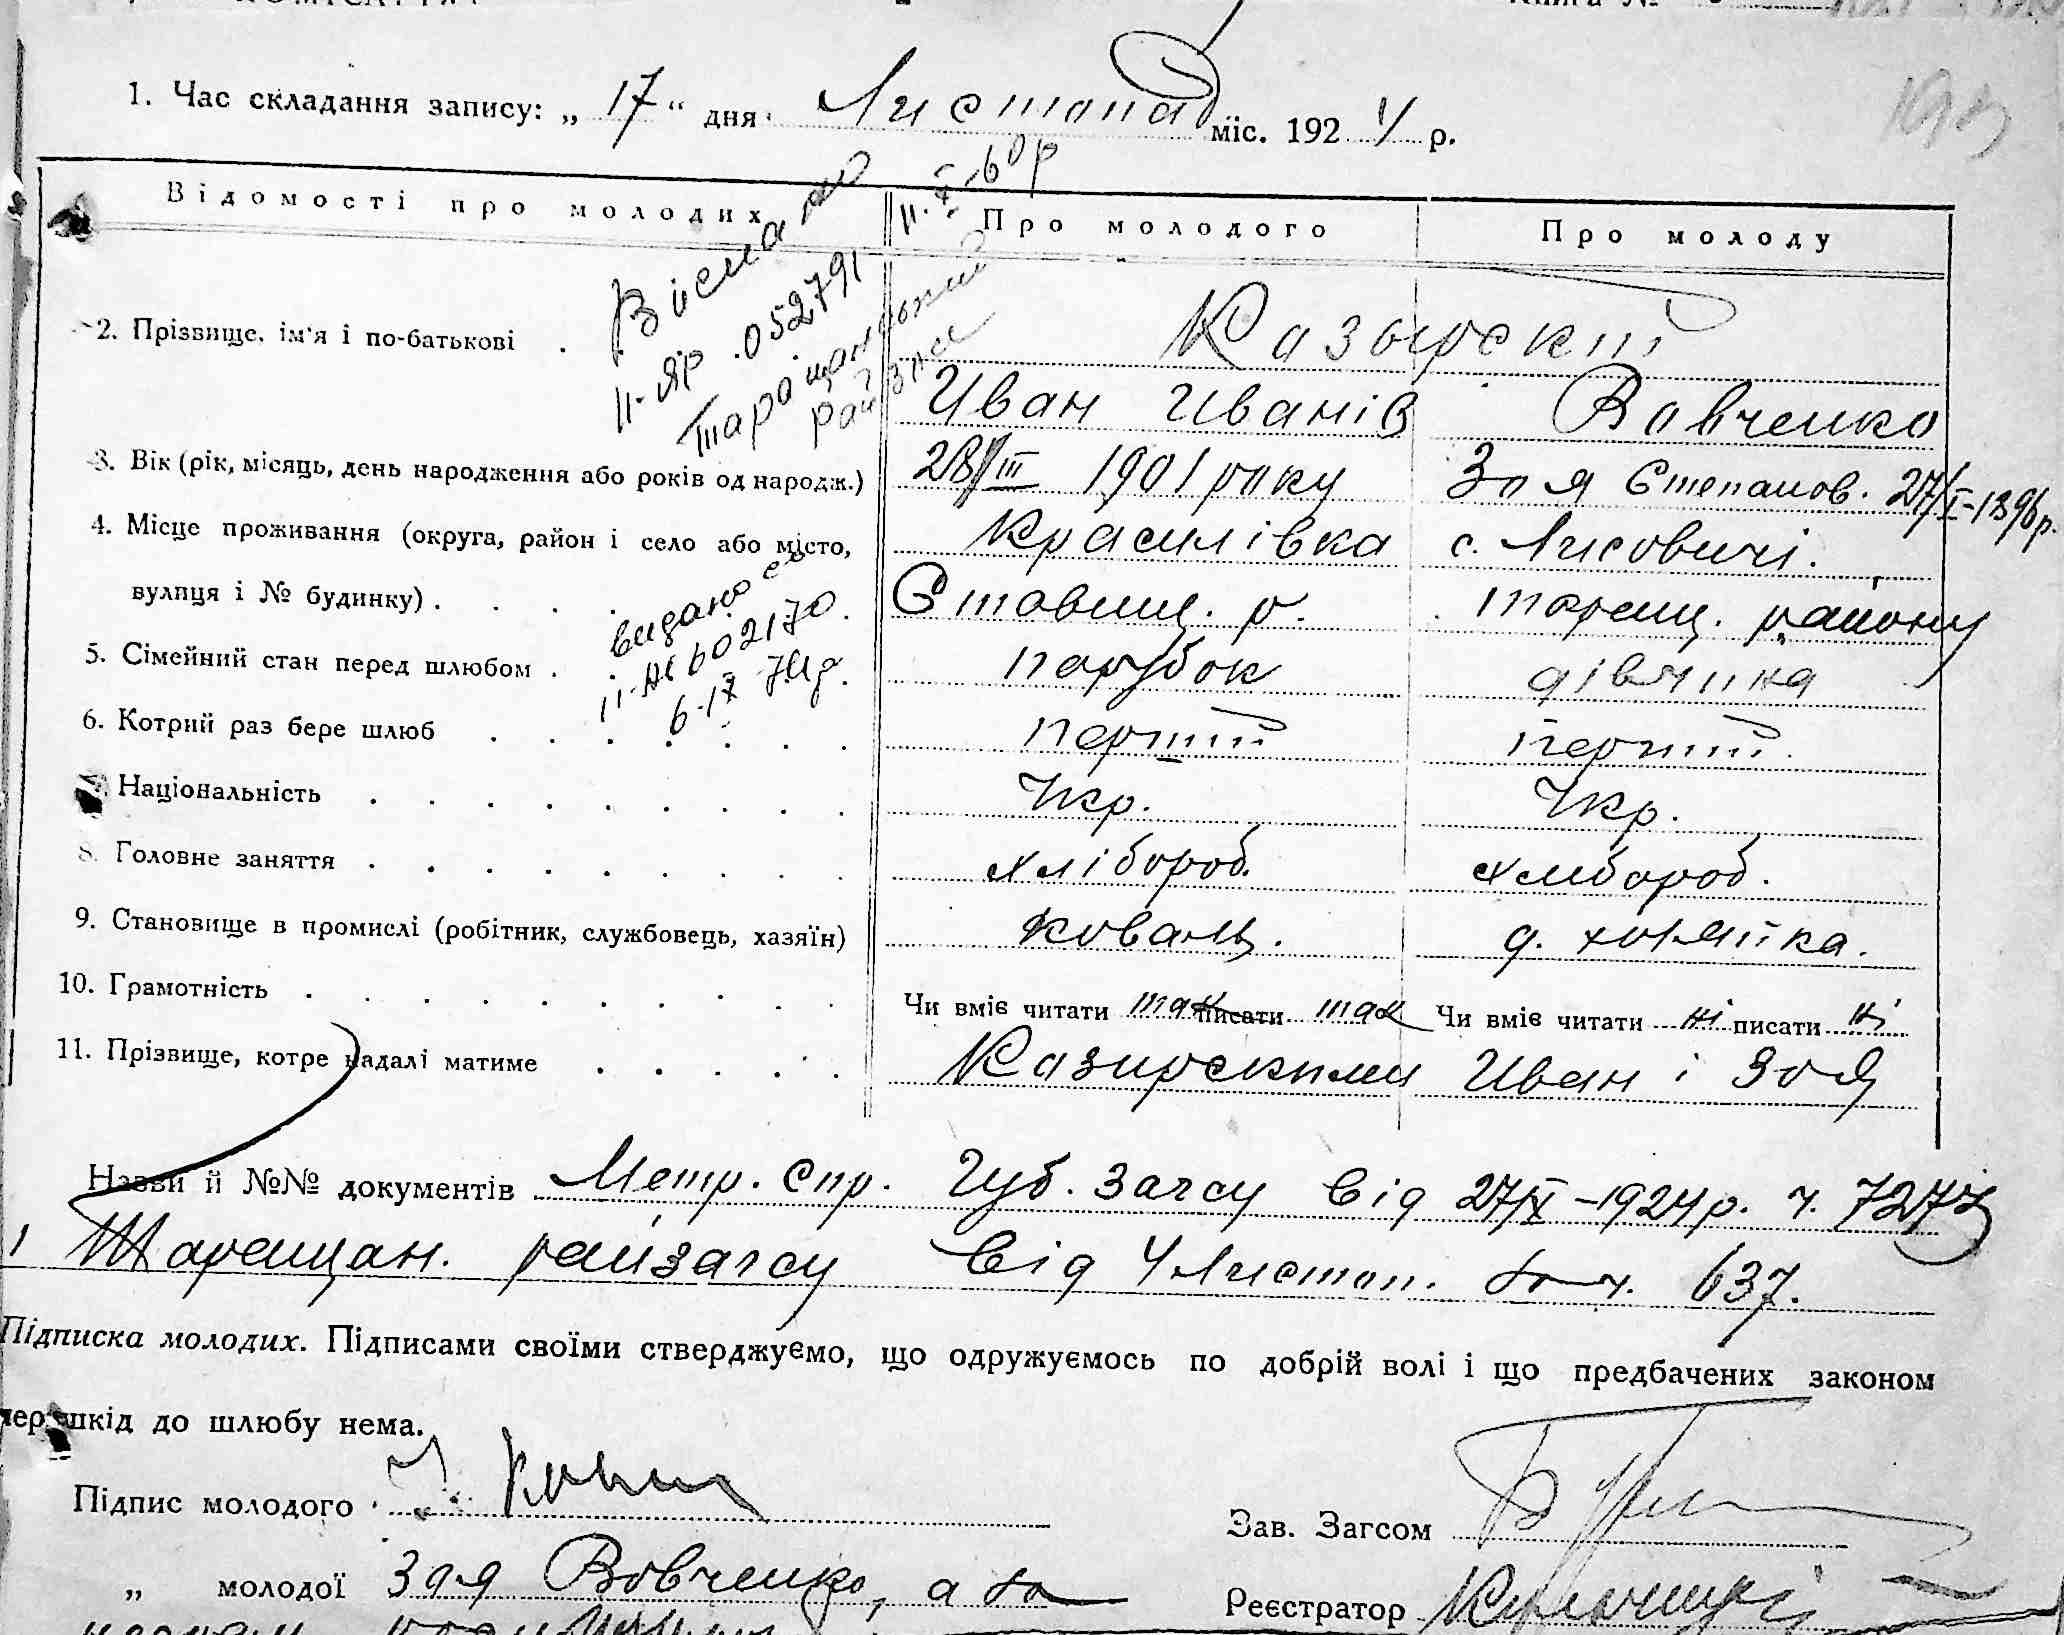 1. Час складання запису: „ 17 “ дня Листопад міс. 192 4 р.
Відомості про молодих
Про молодого
Про молоду
11. X-60р
Видано
II-ЯР .052791
Таращанський
райзагс
2. Прізвище, ім'я і по-батькові .
Казырский
Иван Иванів
Вовченко
3. Вік (рік, місяць, день народження або років од народж.)
28/III 1901 року
Зоя Степанов. 27/I-1896р.
4. Місце проживання (округа, район і село або місто,
вулиця і № будинку) . . . .
Красилівка
Ставищ. р.
с. Лисовичі.
Таращ. району
видано св
6-IX 74р.
5. Сімейний стан перед шлюбом . .
парубок
дівчина
6. Котрий раз бере шлюб . . . . . . .
перший
перший.
7. Національність . . . . . . . . .
Укр.
Укр.
8. Головне заняття . . . . . . . . .
хлібороб.
хлибороб.
9. Становище в промислі (робітник, службовець, хазяїн)
коваль.
д. хозяйка.
10. Грамотність . . . . . . . . . .
Чи вміє читати так писати так
Чи вміє читати ні писати ні
11. Прізвище, котре надалі матиме . . . . .
Казирскими Иван і Зоя
Назви й №№ документів Метр. спр. Губ. загсу від 27/X-1924р. ч. 7277
і Таращан. райзагсу від 4 Листоп. за ч. 637.
Підписка молодих. Підписами своїми стверджуємо, що одружуємось по добрій волі і що предбачених законом
перешкід до шлюбу нема.
Підпис молодого
Зав. Загсом
„ молодої Зоя Вовченко, а за
Реєстратор